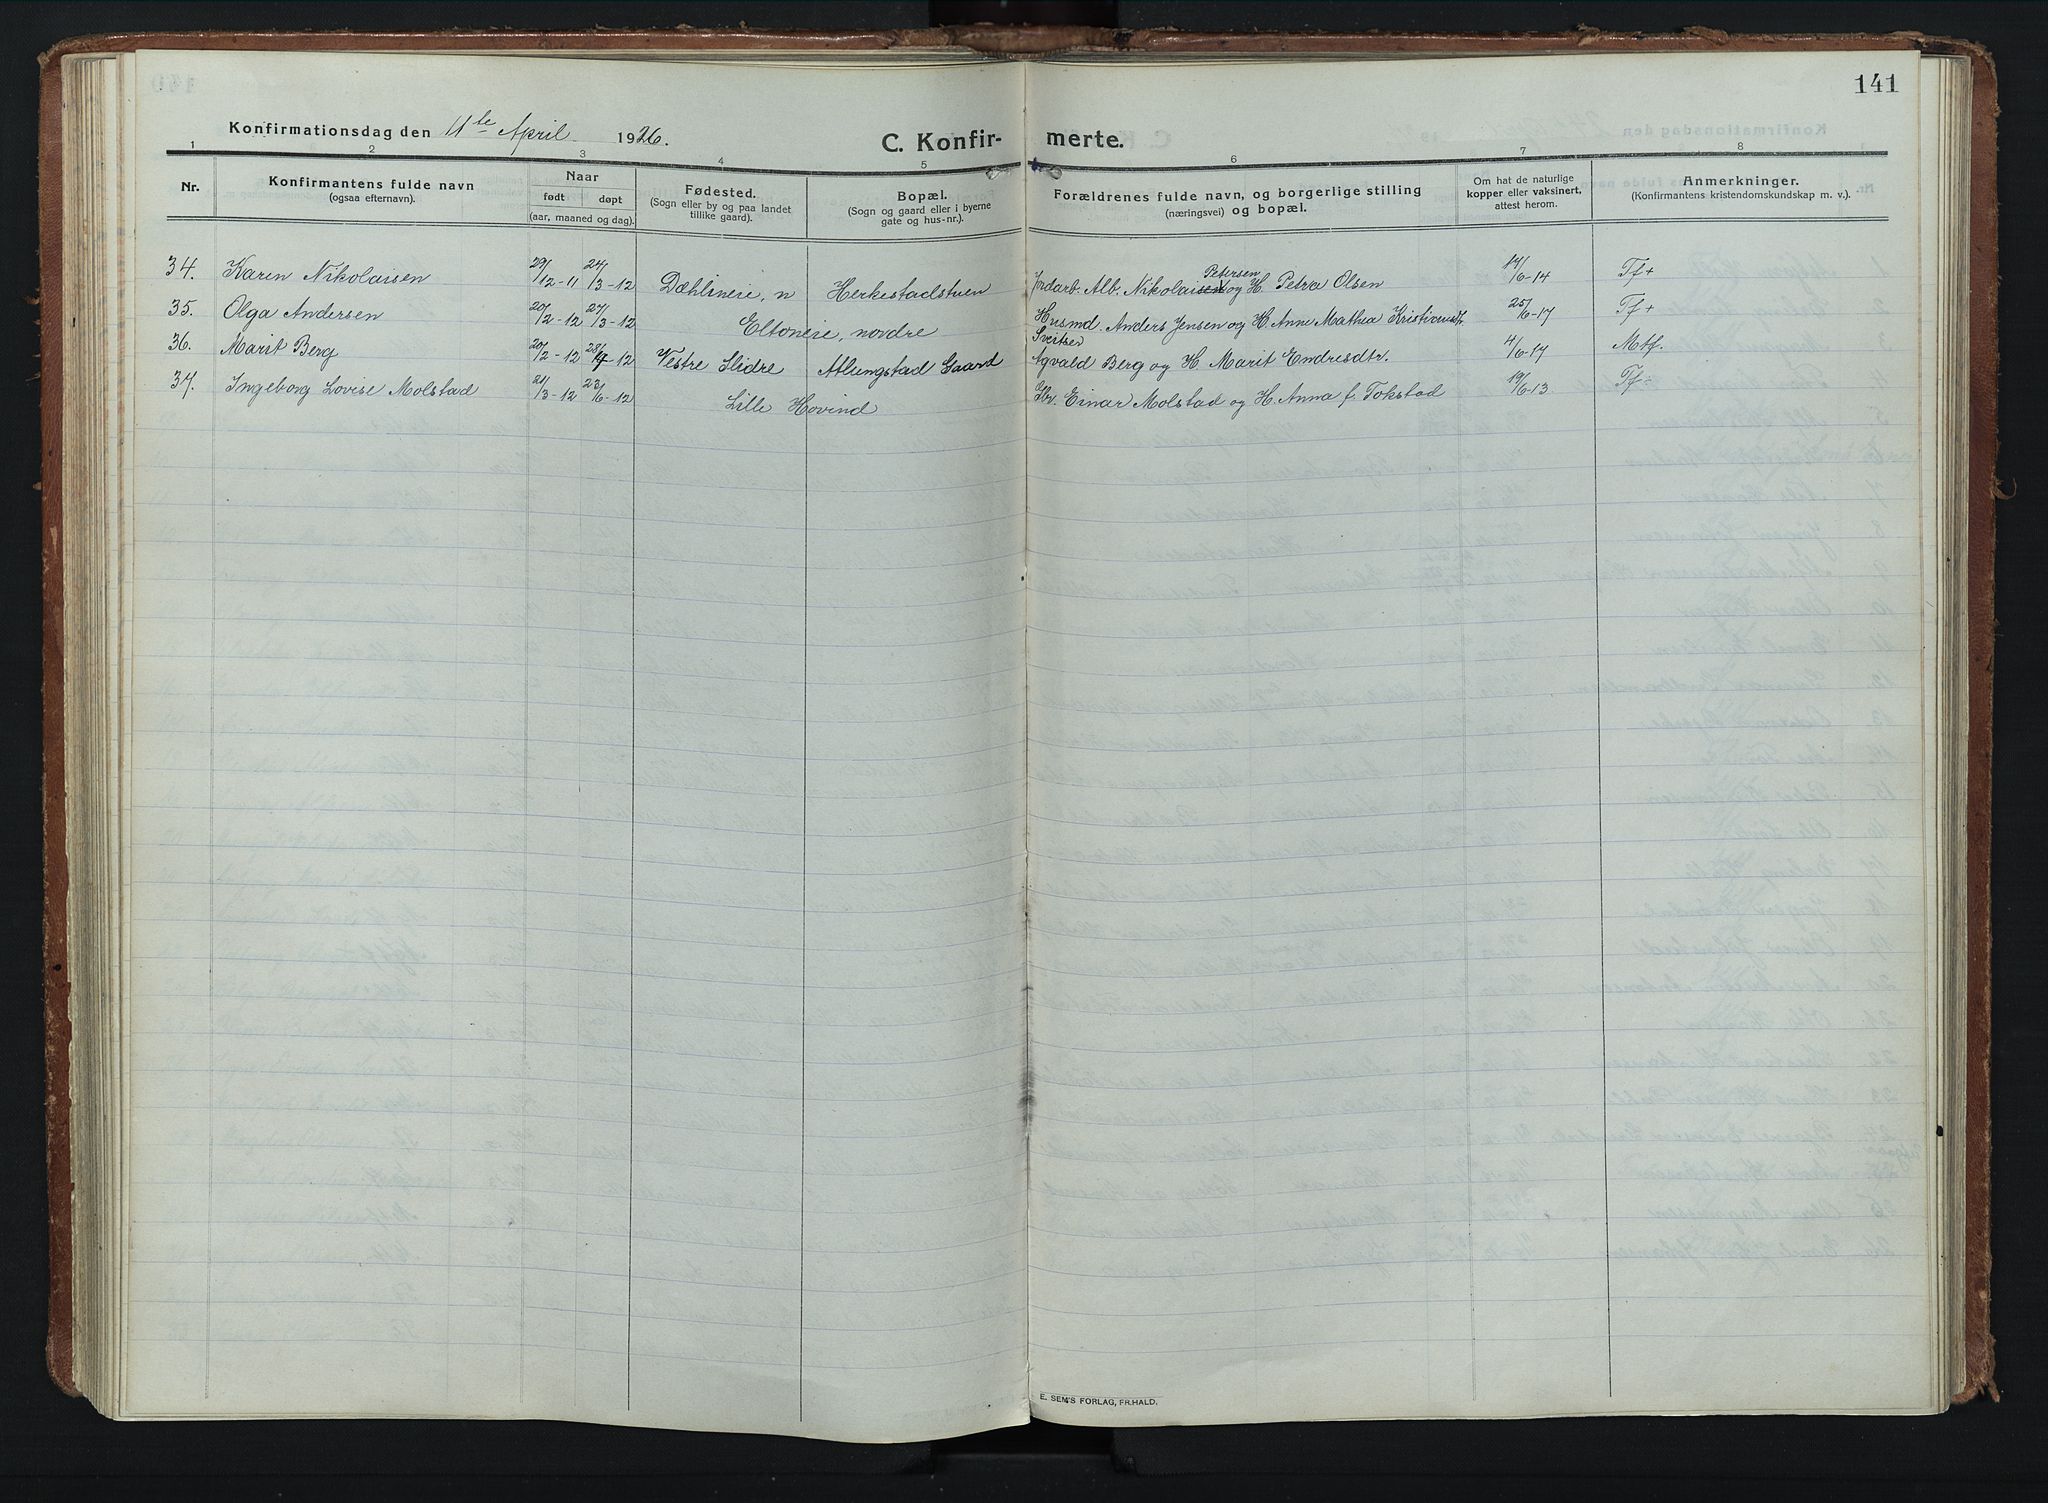 141
Konfirmationsdag den 11te April 1926.
C. Konfirmerte.
1 2 3 4 5 6 7 8
Nr.
Konfirmantens fulde navn
(ogsaa efternavn).
Naar
født døpt
(aar, maaned og dag).
Fødested.
(Sogn eller by og paa landet
tillike gaard).
Bopæl.
(Sogn og gaard eller i byerne
gate og hus-nr.).
Forældrenes fulde navn, og borgerlige stilling
(næringsvei) og bopæl.
Om hat de naturlige
kopper eller vaksinert,
attest herom.
Anmerkninger.
(Konfirmantens kristendomskundskap m. v.).
34. Karen Nikolaisen 29/12-11 24/3-12 Dæhlineie, n Herkestadstuen Jordarb. Alb. Nikolaisen Petersen og H. Petra Olsen 17/6-14 Tf+
35. Olga Andersen 20/2-12 27/3-12 Eltoneie, nordre Husmd. Anders Jensen og H. Anne Mathea Kristiansdtr 25/6-17 Tf+
36. Marit Berg 20/2-12 28/4-12 Vestre Slidre Atlungstad Gaard Sveitser Agvald Berg og H. Marit Endresdtr. 4/6-17 Mtf.
37. Ingeborg Lovise Molstad 21/3-12 23/6-12 Lille Hovind Gbr. Einar Molstad og H. Anna f. Tokstad 19/6-13. Tf÷
E. SEM'S FORLAG, FR.HALD.